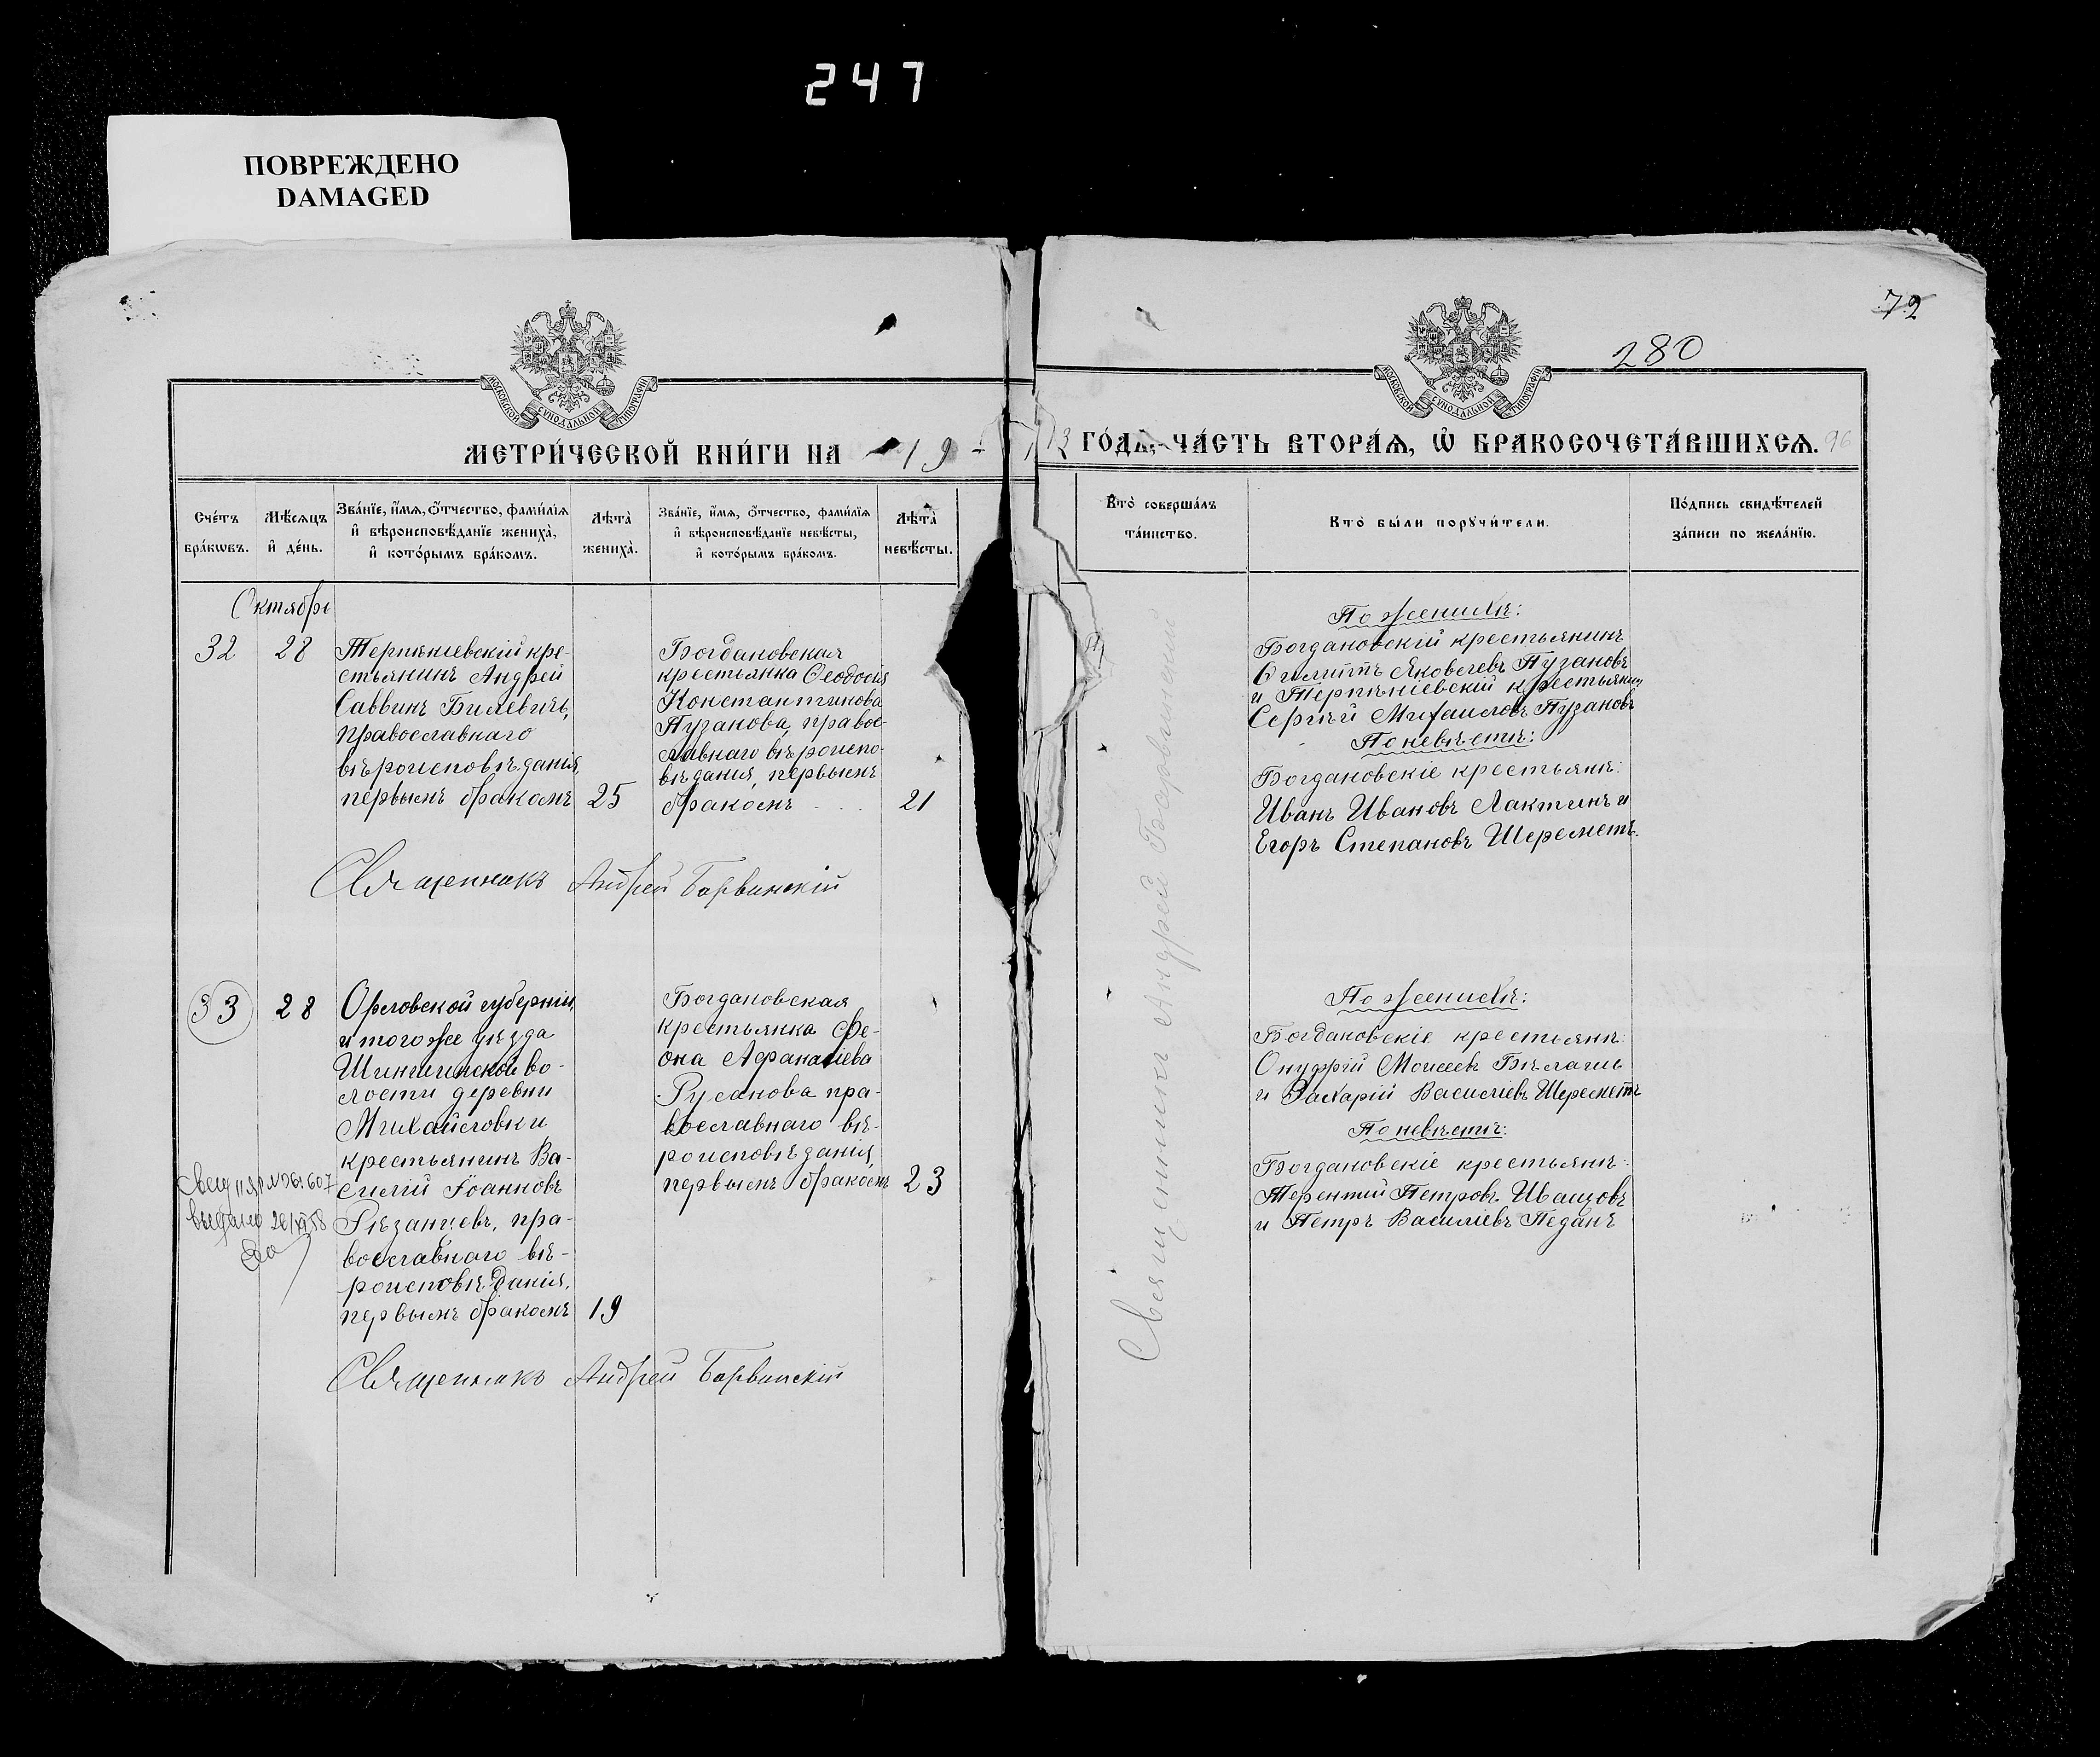 247
ПОВРЕЖДЕНО
DAMAGED
72
280
МОСКОВСКОЙ СУНОДАЛЬНОЙ ТИПОГРАФІИ
МОСКОВСКОЙ СУНОДАЛЬНОЙ ТИПОГРАФІИ
МЕТРИ́ЧЕСКОЙ КНИ́ГИ НА 19 13 ГО́ДЪ, ЧА́СТЬ ВТОРА́Я, Ѡ БРАКОСОЧЕТА́ВШИХСЯ. 96
Сче́тъ бра́кωвъ.
Мѣ́сяцъ и҆ де́нь.
Зва́нїе, и҆́мя, ѻ҆́тчество, фами́лїя и҆ вѣроисповѣ́данїе жениха̀, и҆ кото́рымъ бра́комъ.
Лѣта̀ жениха̀.
Зва́нїе, и҆́мя, ѻ҆́тчество, фами́лїя и҆ вѣроисповѣ́данїе невѣ́сты, и҆ кото́рымъ бра́комъ.
Лѣта̀ невѣ́сты.
Кто̀ соверша́лъ та́инство.
Кто̀ бы́ли порꙋчи́тели.
По́дпись свидѣ́телей за́писи по жела́нїю.
Октябрь
32
28
Терпѣніевскій кре-
стьянинъ Андрей
Саввинъ Билевичъ,
православнаго
вѣроисповѣданія,
первымъ бракомъ
25
Богдановская
крестьянка Ѳеодосія
Константинова
Пузанова, правос-
лавнаго вѣроиспо-
вѣданія, первымъ
бракомъ
21
Священникъ Андрей Борвинскій
По женихѣ:
Богдановскій крестьянинъ
Филиппъ Яковлевъ Пузановъ
и Терпѣніевскій крестьянинъ
Сергѣй Михаиловъ Пузановъ
По невѣстѣ:
Богдановскіе крестьяне:
Иванъ Ивановъ Лактинъ и
Егоръ Степановъ Шереметъ.
33
28
Орловской губерніи,
и того же уѣзда
во-
лости деревни
Михайловки
крестьянинъ Ва-
силій Іоанновъ
Рязанцевъ, пра-
вославнаго вѣ-
роисповѣданія,
первымъ бракомъ
19
Богдановская
крестьянка Ѳе-
она Аѳанасіева
Русанова пра-
вославнаго вѣ-
роисповѣданія,
первымъ бракомъ
23
выдано
Священникъ Андрей Борвинскій
По женихѣ:
Богдановскіе крестьяне:
Онуфрій Моисеевъ Бѣлашъ
и Захарій Василіевъ Шереметъ
По невѣстѣ:
Богдановскіе крестьяне:
Терентій Петровъ Иващовъ
и Петръ Василіевъ Педанъ
Священникъ Андрей Борвинскій